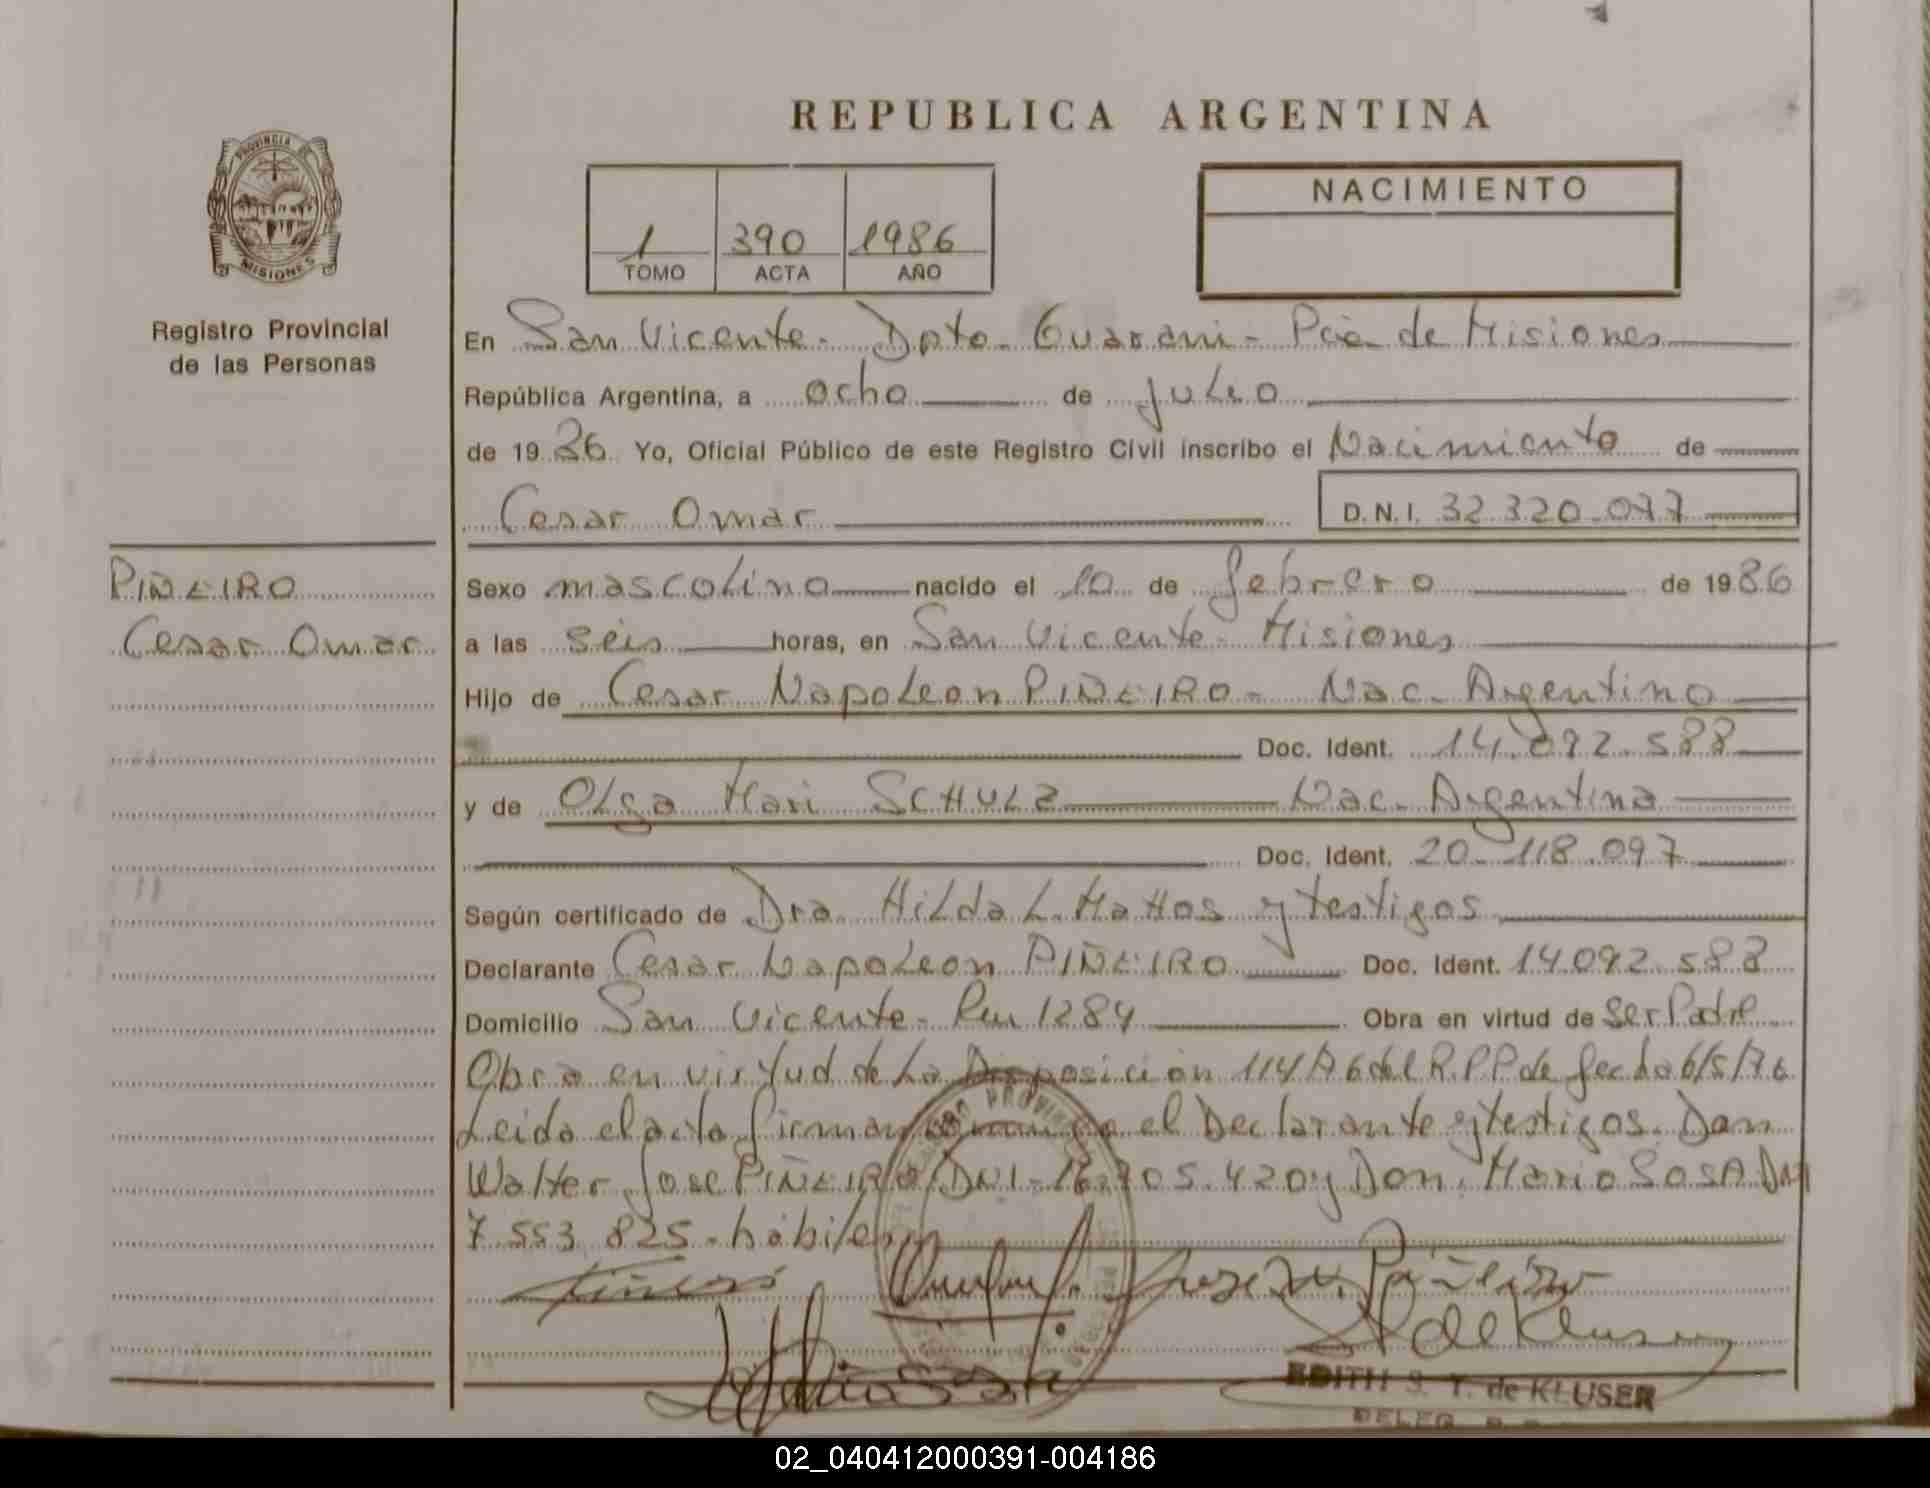 REPUBLICA ARGENTINA
PROVINCIA DE
MISIONES
Registro Provincial
de las Personas
1 390 1986
TOMO ACTA AÑO
NACIMIENTO
En San Vicente - Dpto. Guarani - Pcia de Misiones
República Argentina, a ocho de julio
de 1986 Yo, Oficial Público de este Registro Civil inscribo el Nacimiento de
Cesar Omar D.N.I. 32.320.077
PIÑEIRO
Cesar Omar
Sexo mascolino nacido el 10 de febrero de 1986
a las seis horas, en San Vicente - Misiones
Hijo de Cesar Napoleon PIÑEIRO - Nac. Argentino
Doc. Ident. 14.092.588
y de Olga Mari SCHULZ Nac. Argentina
Doc. Ident. 20.118.097
Según certificado de Dra. Hilda L. Mattos y testigos
Declarante Cesar Napoleon PIÑEIRO Doc. Ident. 14.092.588
Domicilio San Vicente - 1284 Obra en virtud de Ser Padre
Obra en virtud de La Disposición 114/76 del R.P.P de fecha 6/5/76
Leida el acta firman conmigo el Declarante y testigos. Don
Walter Jose PIÑEIRO DNI - 16.905.420 y Don Mario SOSA DNI
7.553.825 - habiles
EDITH S. T. de KLUSER
DELEG.
02_040412000391-004186